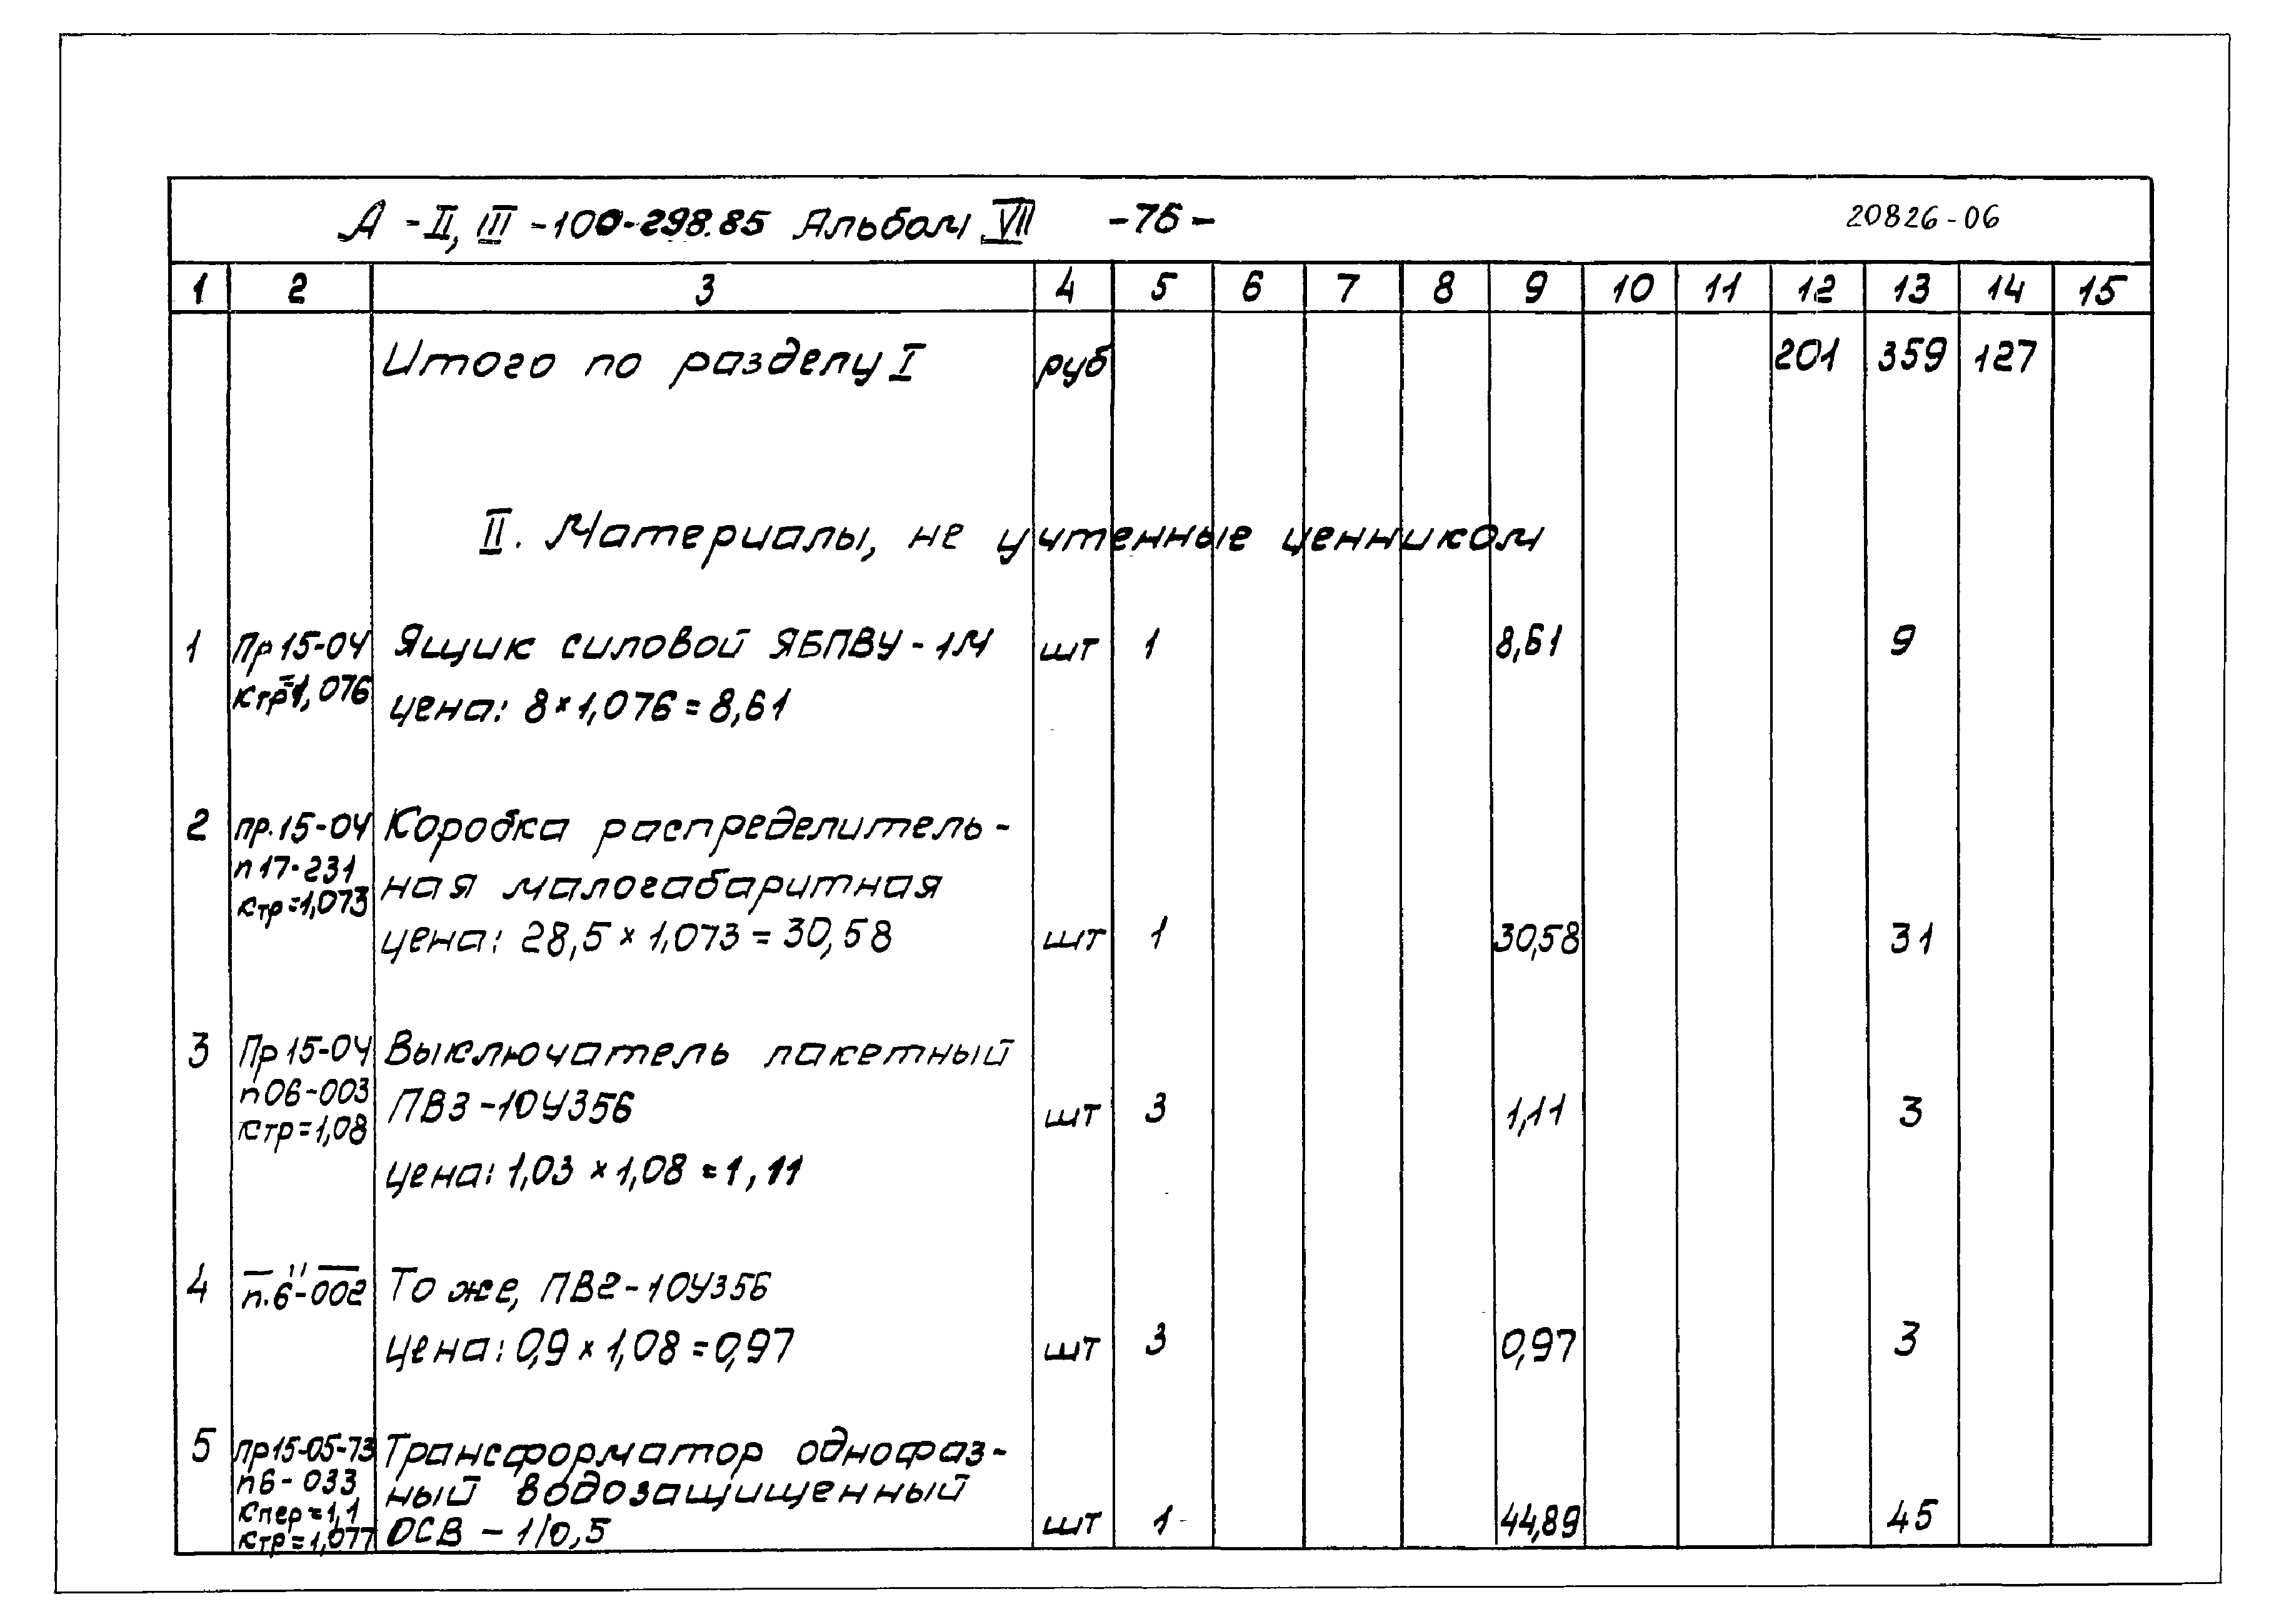 А -II, III -100-298.85 Альбом VII -76- 20826-06
1 2 3 4 5 6 7 8 9 10 11 12 13 14 15
Итого по разделу I руб 201 359 127
II. Материалы, не учтенные ценником
1 Пр 15-04 Ящик силовой ЯБПВУ-1М шт 1 8,61 9
Ктр=1,076 цена: 8×1,076=8,61
2 пр.15-04 Коробка распределитель-
п17-231 ная малогабаритная
Ктр=1,073
цена: 28,5×1,073=30,58 шт 1 30,58 31
3 Пр 15-04 Выключатель пакетный
п06-003 ПВ3-10У356 шт 3 1,11 3
Ктр=1,08
цена: 1,03×1,08=1,11
4 —"— То же, ПВ2-10У356
п.6-002
цена: 0,9×1,08=0,97 шт 3 0,97 3
5 Пр15-05-73 Трансформатор однофаз-
п6-033 ный водозащищенный
Кпер=1,1
Ктр=1,077 ОСВ-1/0,5 шт 1 44,89 45